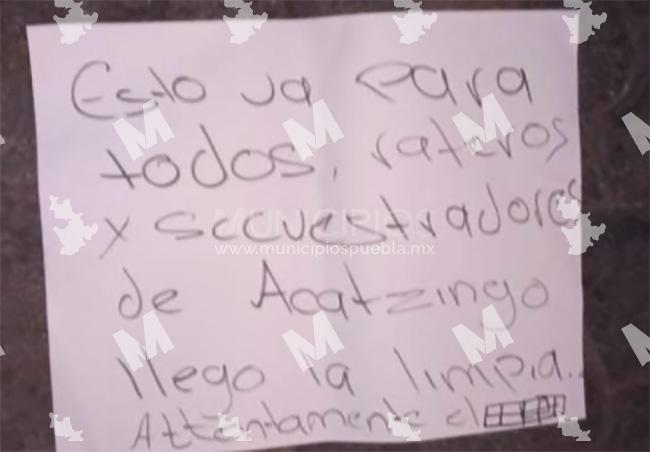 Esto va para
todos, rateros
x secuestradores
MUNICIPIOS
www.municipiospuebla.mx
de Acatzingo
llego la limpia..
Attentamente el